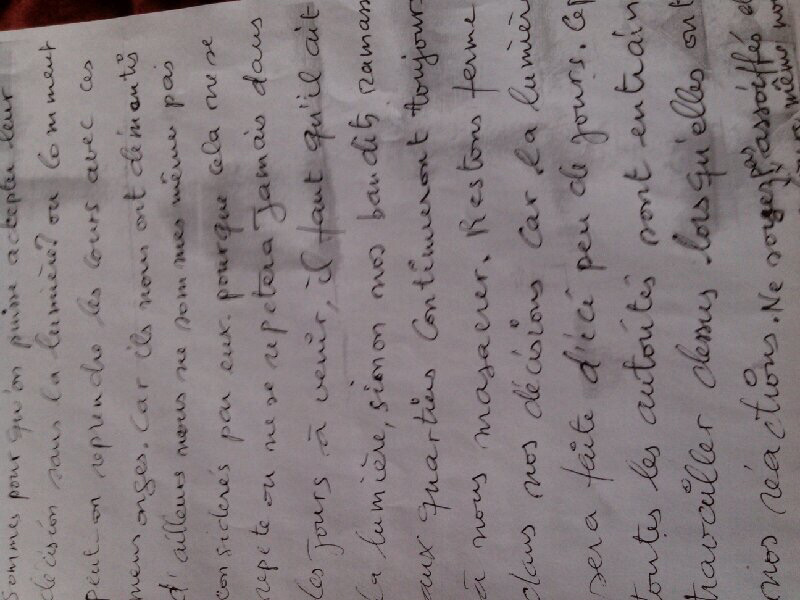 sommes pour qu'on puisse accepter leur
décision sans la lumière? ou comment
peut-on reprendre les cours avec ces
mensonges. Car ils nous ont démentis
d'ailleurs nous ne sommes même pas
considerés par eux. pourque cela ne se
repète ou ne se repetera Jamais dans
les jours à venir, il faut qu'il ait
la lumière, sinon nos bandits ramass
aux quartiers continueront toujours
à nous masacrer. Restons ferme
dans nos décisions car la lumière
sera faite d'ici peu de jours. Cep
toutes les autorités sont entrain
travailler dessus lorsqu'elles ont
nos réactions. Ne soyez pas assoiffés d
même no